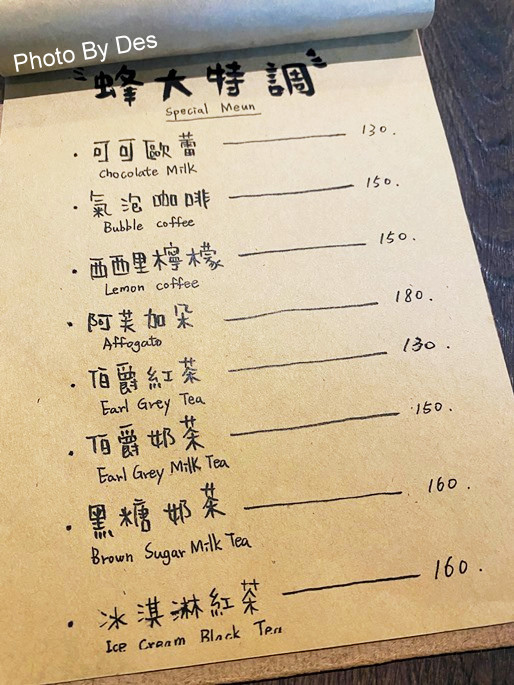 Photo By Des
蜂大特調
Special Meun
· 可可歐蕾 130.
Chocolate Milk
· 氣泡咖啡 150.
Bubble coffee
· 西西里檸檬 150.
Lemon coffee
· 阿芙加朵 180.
Affogato
· 伯爵紅茶 130.
Earl Grey Tea
· 伯爵奶茶 150.
Earl Grey Milk Tea
· 黑糖奶茶 160.
Brown Sugar Milk Tea
· 冰淇淋紅茶 160.
Ice Cream Black Tea